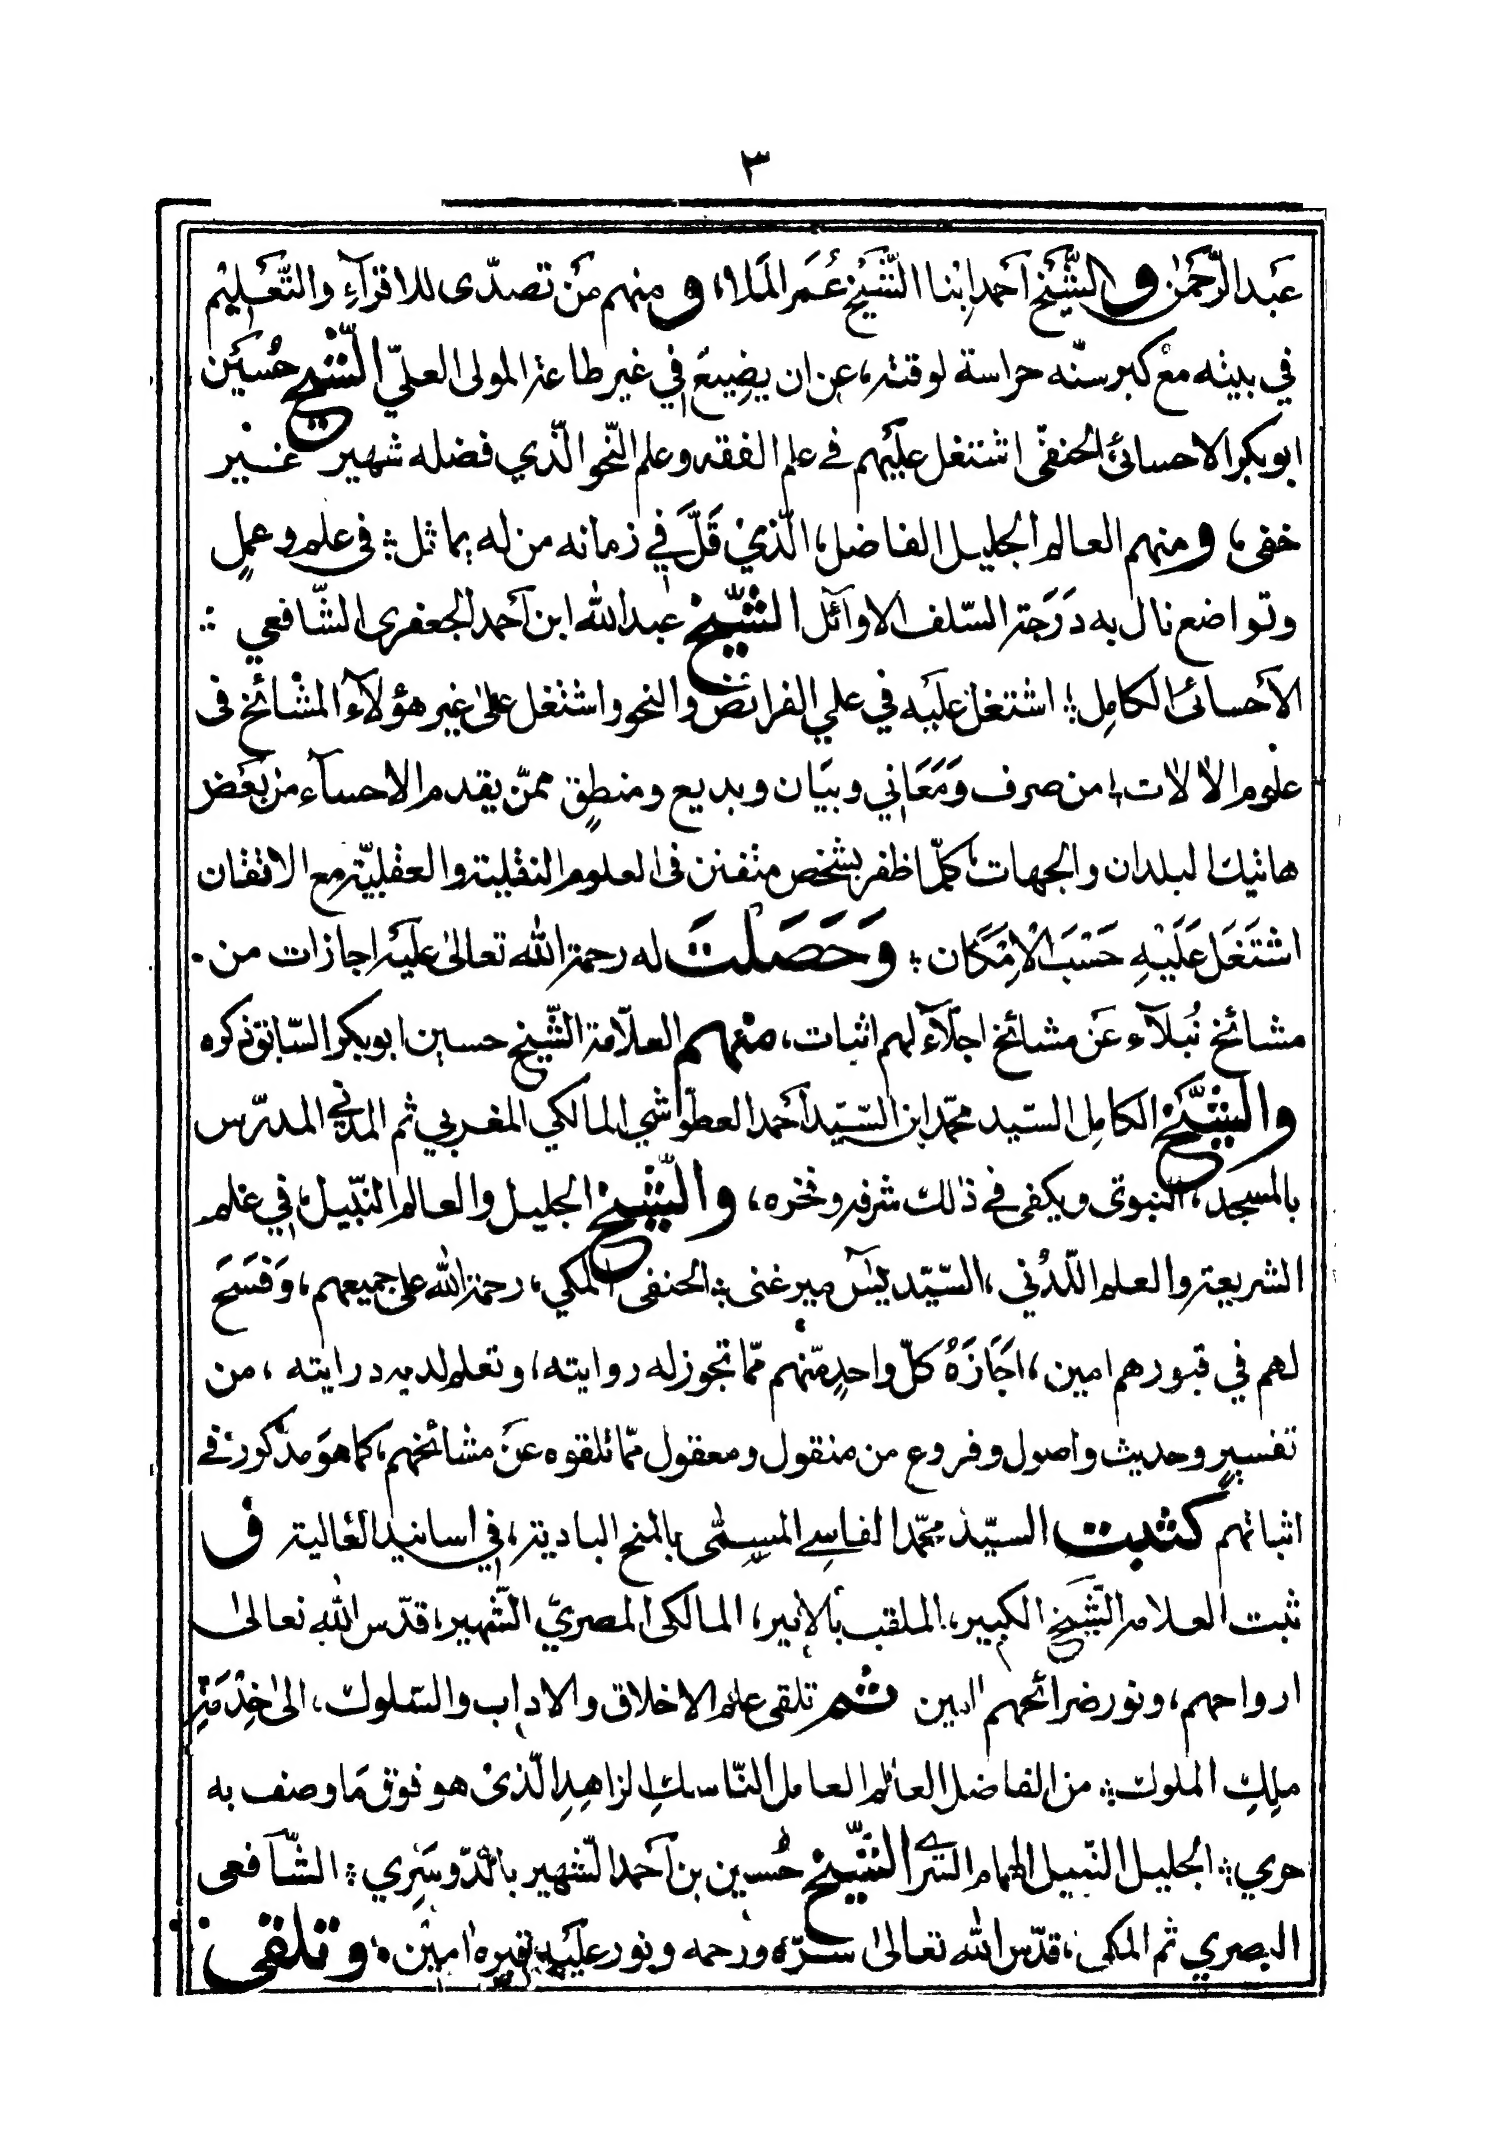 ٣
عَبد الرَّحمٰن و الشَّيخ اَحمد اِبْنا الشَّيْخ عُمَر المَلا، و منهم مَن تصدّى للاقرآءِ والتَّعَليْم
في بيته مع كبر سنّه حراسة لوقته، عن ان يضِيعَ في غير طاعة المولى العليّ الشّيخ حُسيَن
ابو بكر الاحسائي الحنفيّ اشتغل عليَهم في علم الفقه وعلم النّحو الّذي فضله شهير غير
خفى، و منهم العالم الجليل الفاضل، الّذيْ قَلَّ في زمانه من له يماثل؛ فى علم و عملٍ
وتواضع نال به دَرَجة السّلف الاوآئل الشّيّخ عبد الله ابن اَحمد الجعفرى الشّافعي ؛
الاَحسائى الكامِل؛ اشتغل عليَه في علمي الفرائض والنحو واشتغل علىٰ غير هؤلاَءِ المشائخ فى
علوم الاٰلات؛ من صرف وَمَعَاني وبيَان وبديع ومنطقٍ ممّن يقدم الاحسآء من بَعَض
هاتيك البلدان والجهات كلّما ظفر بشخص متفنن فى العلوم النقلية والعقليّة مع الاتقان
اشتَغَل عَلَيْهِ حَسْبَ الاِمْكَان ؛ وَحَصَلتَ له رحمة الله تعالىٰ عليَه اجازات من
مشائخ نُبلآء عَن مشائخ اجلّآءَ لهم اثبات، منهم العلاّمة الشّيخ حسين ابو بكر السّابق ذكره
والشيَّخ الكامِل السّيد محمّد ابن السّيّد اَحمد العطّواشي المالكي المغربي ثم المدني المدرّس
بالمسجد، النبوى ويكفى في ذٰلك شرفه وفخره، والشّيخ الجليل والعالم النّبيل، في علم
الشريعة والعلم اللّدُني، السّيّد يٰسٓ ميرغنى؛ الحنفى المكي، رحمة الله على جميعهم، وَفسَحَ
لهم في قبورهم امين، اَجَازَهُ كلّ واحدٍ مّنهم ممّا تجوز له روايته، وتعلم لديه درايته ، من
تفسيرٍ وحديث واصول وفروع من منقول ومعقول ممّا تلقوه عنَ مشائخهم، كما هوَ مذكور في
اثباتهم كثبت السيّد محمّد الفاسي المسمّٰى بالمنح البادية، في اسانيد العَالية ف
ثبت العلامة الشّيَخ الكبير، الملقب بالاَمير، المالكى المصريّ الشّهير، قدّس الله تعالىٰ
ارواحهم، ونور ضرائحهم امين ثم تلقى علم الاخلاق والاداب والسّلوك، الىٰ خِدْمَةِ
ملِكِ الملوك؛ من الفاضل العالم العامل النّاسكِ الزاهدِ الّذىْ هو فوق مَا وصف به
حري؛ الجليل النّبيل الهمام السّرے الشّيّخ حُسين بن اَحمد الشّهير بالدّوسَرِي ؛ الشّآفعى
البصري ثم المكى، قدّس الله تعالىٰ سرّه ورحمه ونور عليَه قبره اٰمين، وتلقى